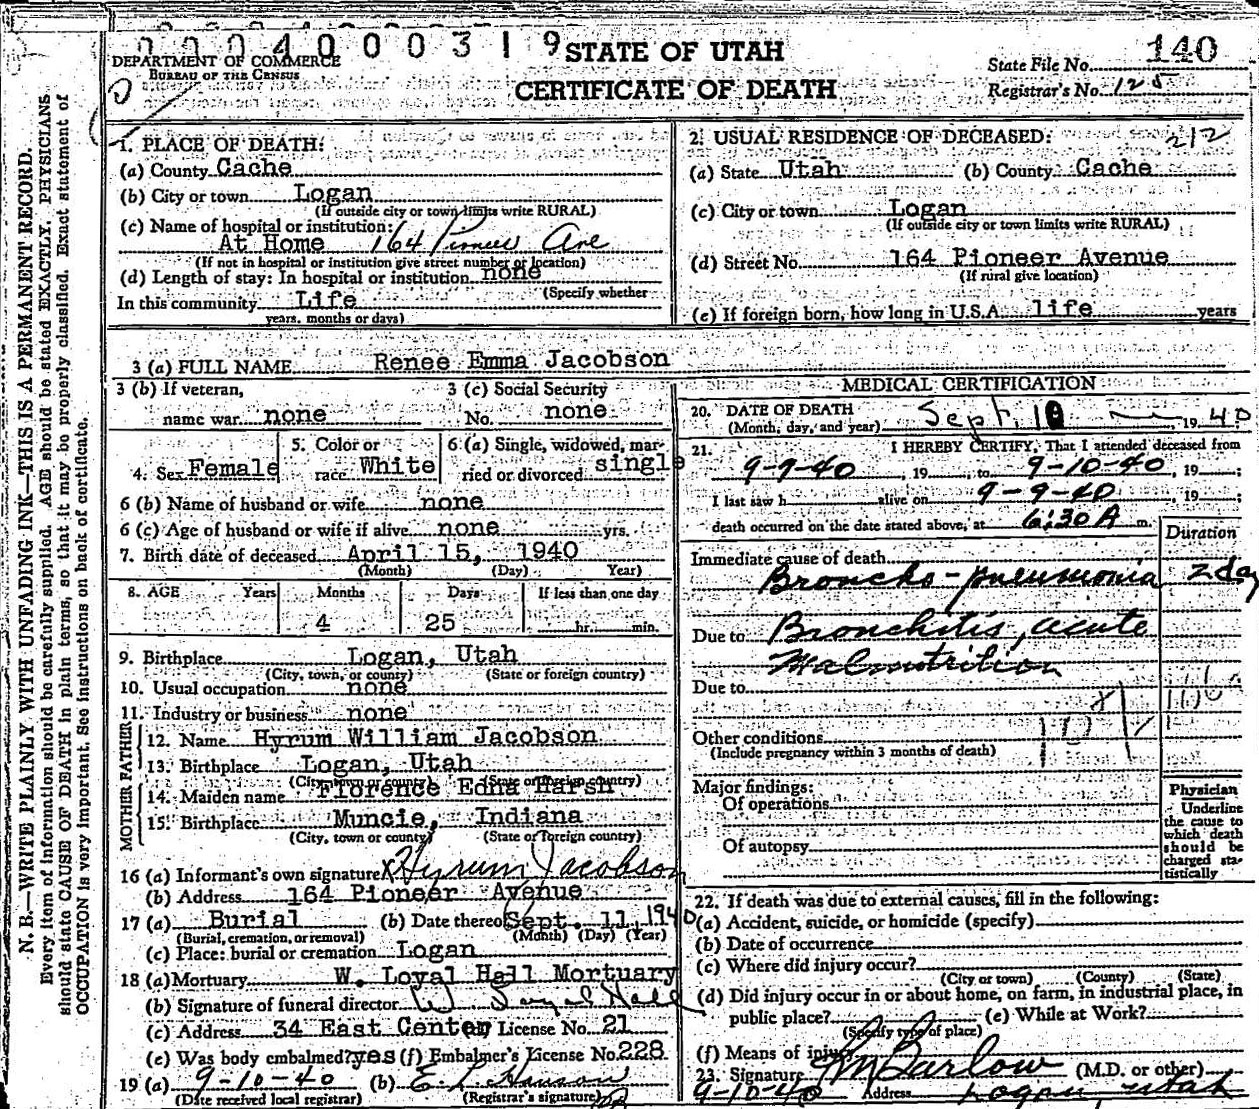 0004000319
STATE OF UTAH
CERTIFICATE OF DEATH
DEPARTMENT OF COMMERCE
BUREAU OF THE CENSUS
State File No. 140
Registrar's No. 125
N. B.—WRITE PLAINLY WITH UNFADING INK—THIS IS A PERMANENT RECORD.
Every item of information should be carefully supplied. AGE should be stated EXACTLY. PHYSICIANS
should state CAUSE OF DEATH in plain terms, so that it may be properly classified. Exact statement of
OCCUPATION is very important. See instructions on back of certificate.
1. PLACE OF DEATH:
(a) County Cache
(b) City or town Logan
(If outside city or town limits write RURAL)
(c) Name of hospital or institution:
At Home 164 Pioneer Ave
(If not in hospital or institution give street number or location)
(d) Length of stay: In hospital or institution none
(Specify whether
In this community Life
years, months or days)
2. USUAL RESIDENCE OF DECEASED: 212
(a) State Utah (b) County Cache
(c) City or town Logan
(If outside city or town limits write RURAL)
(d) Street No. 164 Pioneer Avenue
(If rural give location)
(e) If foreign born, how long in U.S.A. life years
3 (a) FULL NAME Renee Emma Jacobson
3 (b) If veteran, 3 (c) Social Security
name war none No. none
4. Sex Female 5. Color or race White 6 (a) Single, widowed, married or divorced single
6 (b) Name of husband or wife none
6 (c) Age of husband or wife if alive none yrs.
7. Birth date of deceased April 15, 1940
(Month) (Day) (Year)
8. AGE Years Months Days If less than one day
4 25 hr. min.
9. Birthplace Logan, Utah
(City, town, or county) (State or foreign country)
10. Usual occupation none
11. Industry or business none
FATHER
12. Name Hyrum William Jacobson
13. Birthplace Logan, Utah
(City, town or county) (State or foreign country)
MOTHER
14. Maiden name Florence Edna Harsh
15. Birthplace Muncie, Indiana
(City, town or county) (State or foreign country)
16 (a) Informant's own signature X Hyrum Jacobson
(b) Address 164 Pioneer Avenue
17 (a) Burial (b) Date thereof Sept. 11, 1940
(Burial, cremation, or removal) (Month) (Day) (Year)
(c) Place: burial or cremation Logan
18 (a) Mortuary W. Loyal Hall Mortuary
(b) Signature of funeral director W Loyal Hall
(c) Address 34 East Center License No. 21
(e) Was body embalmed? yes (f) Embalmer's License No. 228
19 (a) 9-10-40 (b) E. L. Hanson
(Date received local registrar) (Registrar's signature)
MEDICAL CERTIFICATION
20. DATE OF DEATH
(Month, day, and year) Sept. 10 1940
21. I HEREBY CERTIFY, That I attended deceased from
9-9-40, 19 to 9-10-40, 19 ;
I last saw h alive on 9-9-40, 19 ;
death occurred on the date stated above, at 6:30 A m.
Duration
Immediate cause of death
Broncho-pneumonia 2 day
Due to Bronchitis, acute
Malnutrition
Due to
107
Other conditions
(Include pregnancy within 3 months of death)
Major findings:
Of operations
Of autopsy
Physician
Underline
the cause to
which death
should be
charged sta-
tistically
22. If death was due to external causes, fill in the following:
(a) Accident, suicide, or homicide (specify)
(b) Date of occurrence
(c) Where did injury occur?
(City or town) (County) (State)
(d) Did injury occur in or about home, on farm, in industrial place, in
public place? (e) While at Work?
(Specify type of place)
(f) Means of injury
23. Signature Barlow (M.D. or other)
9-10-40 Address Logan, Utah